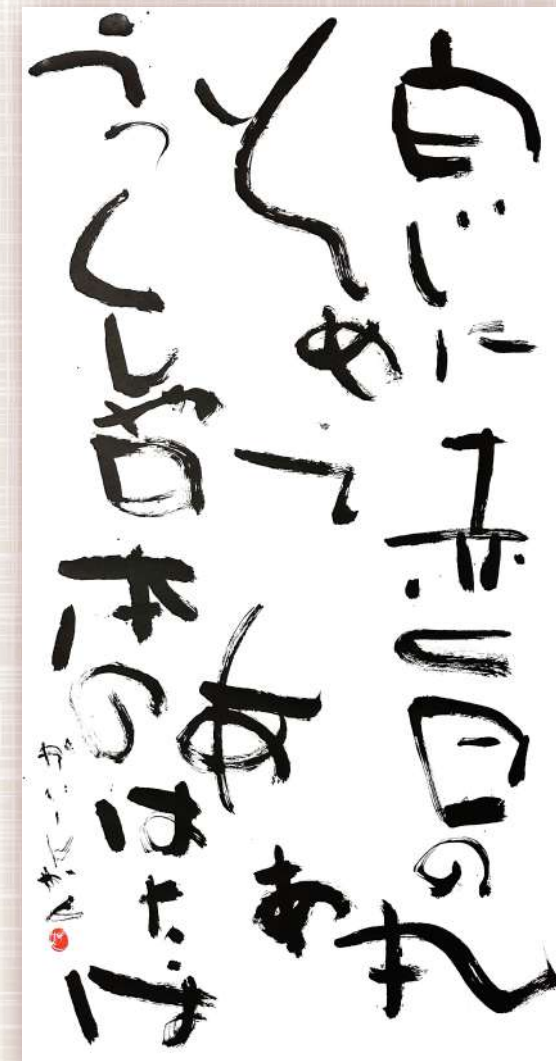 白じに赤く日の丸
そめて ああ
うつくしや日本のはたは